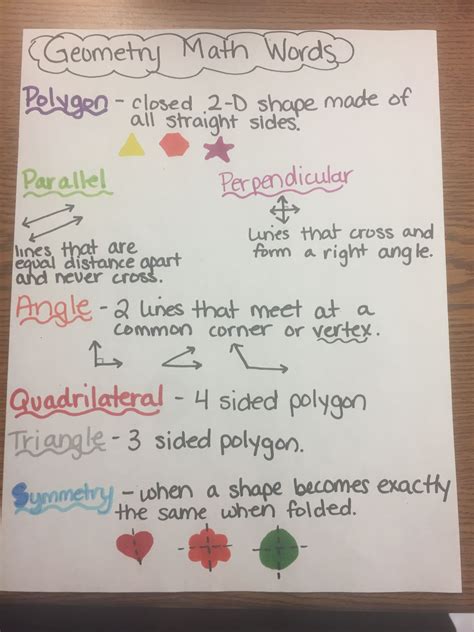 Geometry Math Words
Polygon - closed 2-D shape made of
all straight sides.
Parallel
lines that are
equal distance apart
and never cross.
Perpendicular
Lines that cross and
form a right angle.
Angle - 2 lines that meet at a
common corner or vertex.
Quadrilateral - 4 sided polygon
Triangle - 3 sided polygon.
Symmetry - when a shape becomes exactly
the same when folded.